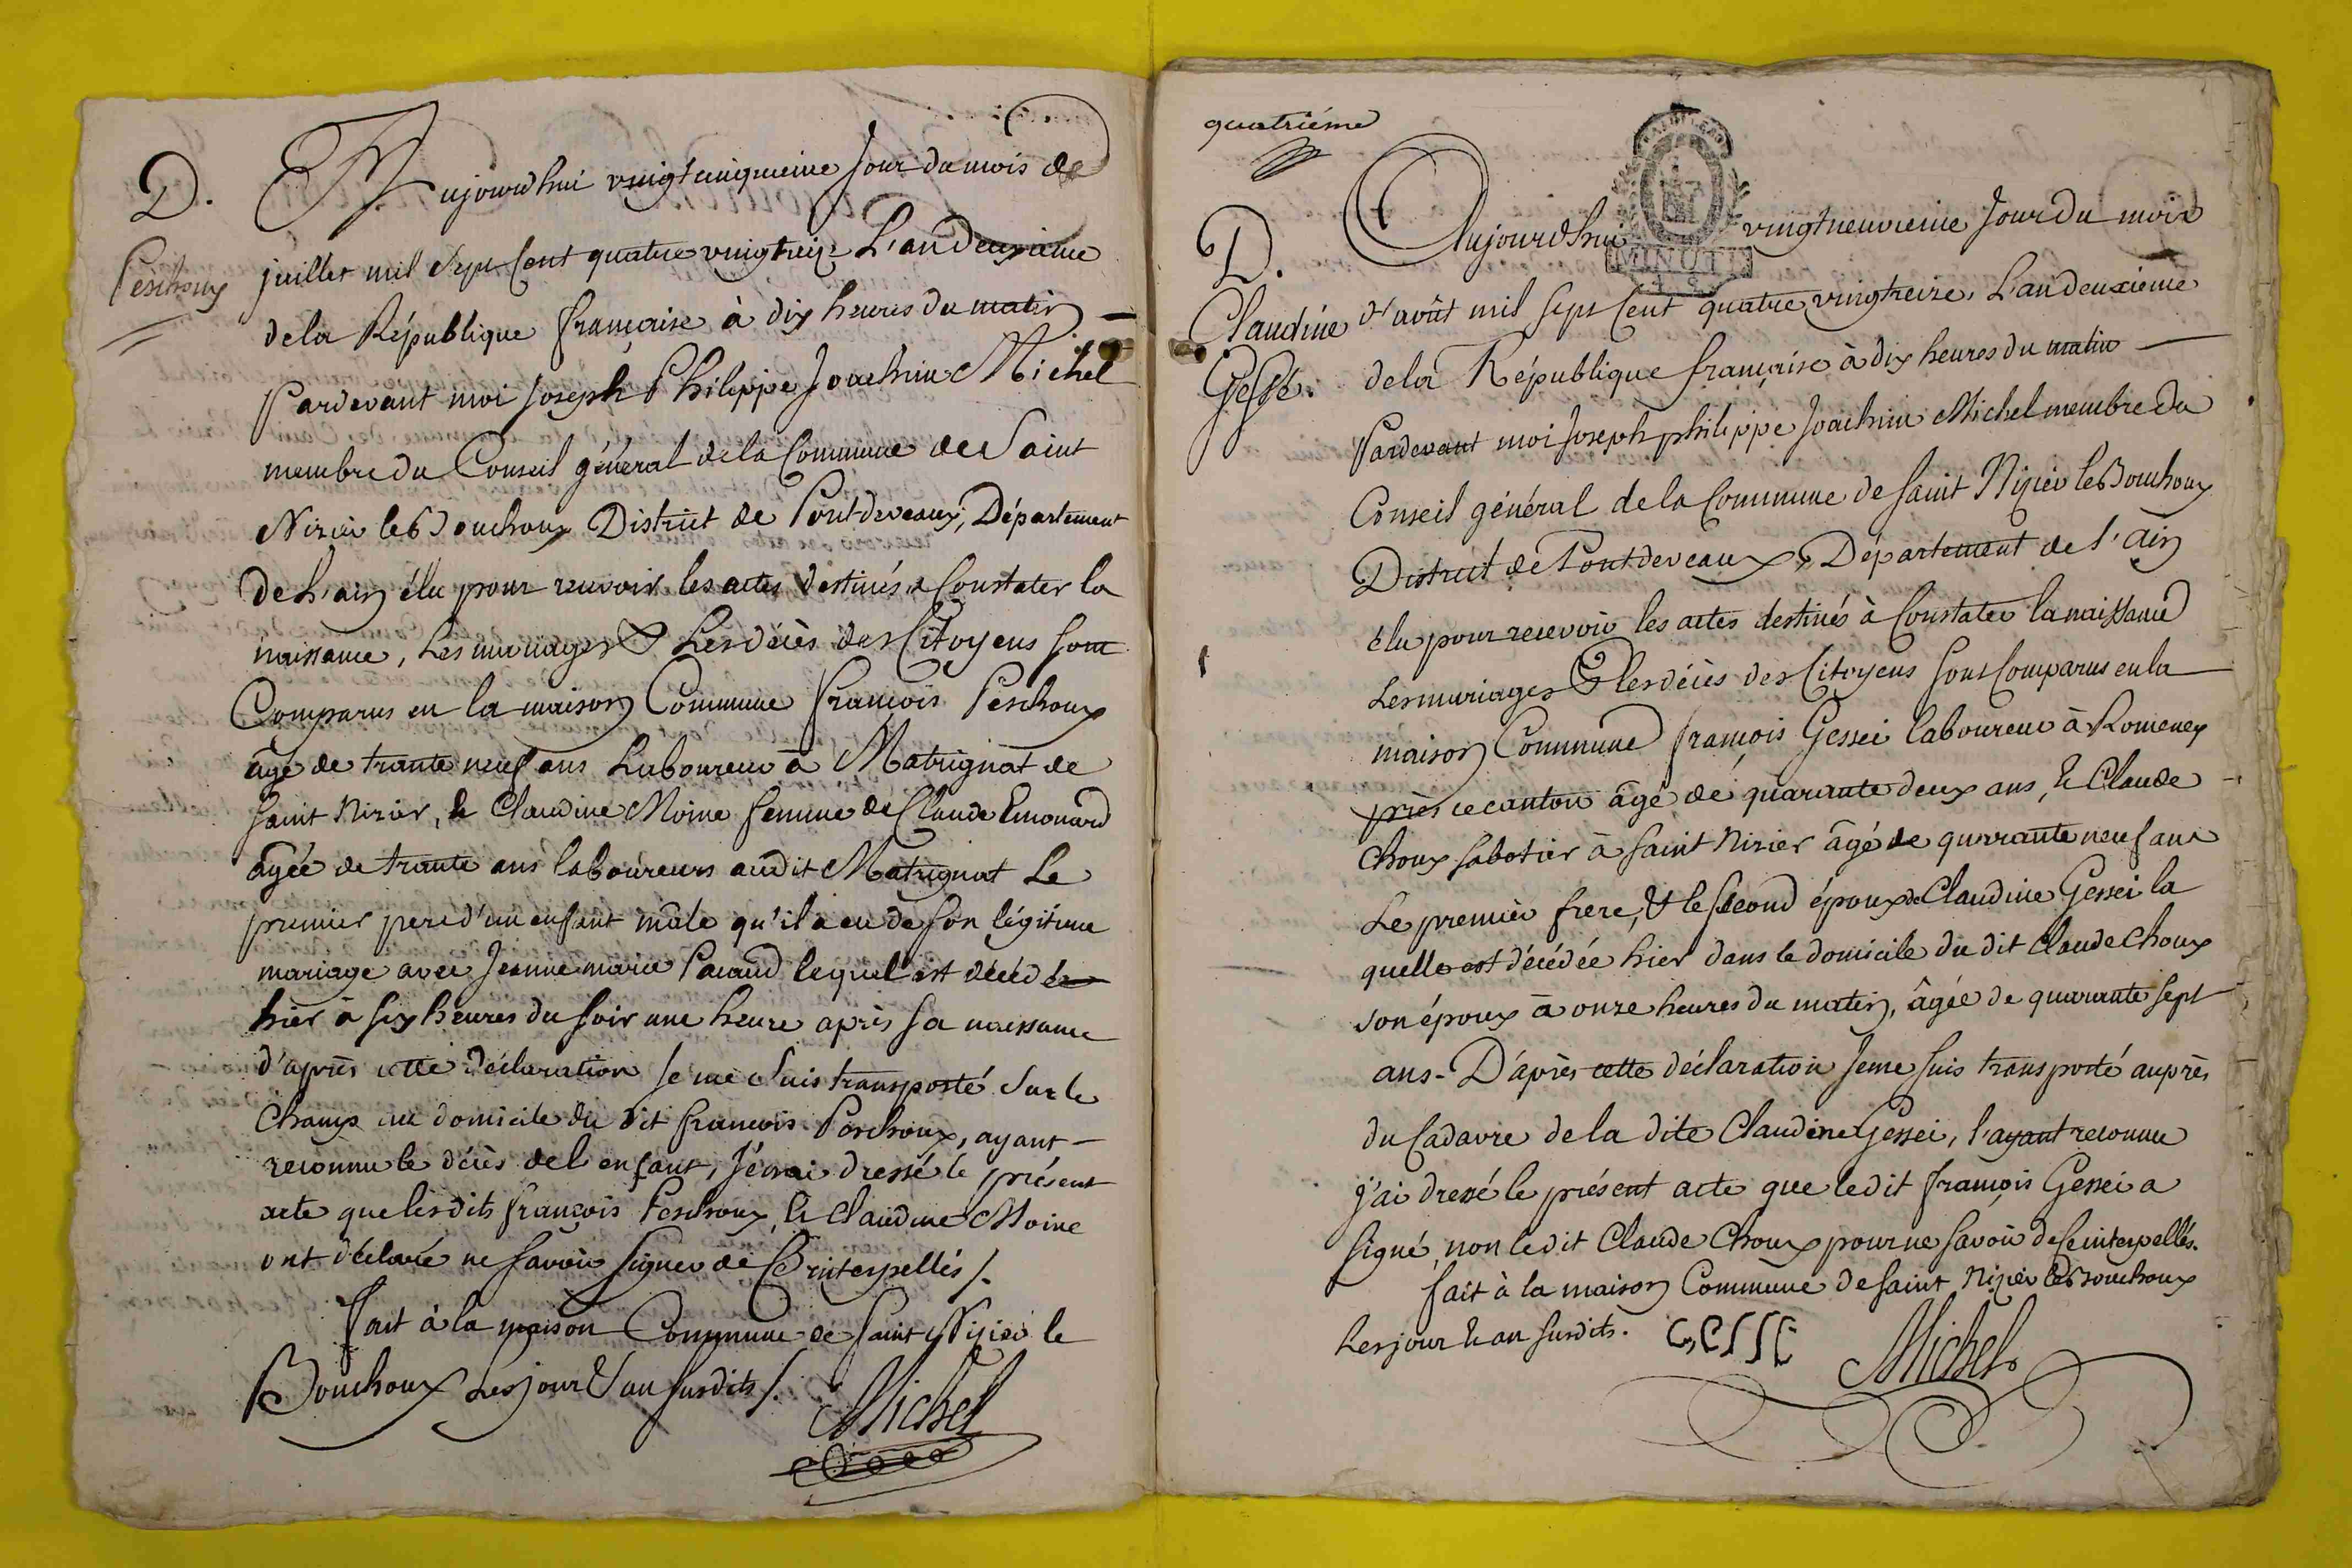 D.
Peschoux
Aujourdhui vingtcinquieme Jour du mois de
juillet mil Sept Cent quatre vingttreize L'an deuxième
de la République française à dix heures du matin
Pardevant moi Joseph Philippe Joachim Michel
membre du Conseil général de la Commune de Saint
Nizier le Bouchoux District de Pontdevaux, Département
de L'ain élu pour recevoir les actes destinés à Constater la
naissance, Les mariages & Les décès des Citoyens sont
Comparus en la maison Commune françois Peschoux
âgé de trante neuf ans Laboureur à Matrignat de
Saint Nizier, & Claudine Moine femme de Claude Emonard
âgée de trante ans laboureurs audit Matrignat Le
premier pere d'un enfant mâle qu'il a eu de son légitime
mariage avec Jeanne marie Pacaud lequel est décédé
hier à six heures du soir une heure après sa naissance
d'après cette déclaration Je me suis transporté sur le
champ au domicile du dit françois Peschoux, ayant
reconnu le décès de l'enfant, J'en ai dressé le présent
acte que lesdits françois Peschoux, & Claudine Moine
ont déclaré ne savoir signer de ce interpellés /.
fait à la maison Commune de Saint Nizier le
Bouchoux Les jour & an susdits /.
Michel
quatriéme
MINUTE
D.
Claudine
Gessé.
Aujourdhui vingtneuvieme Jour du mois
d'août mil sept Cent quatre vingttreize, L'an deuxieme
de la République française à dix heures du matin
Pardevant moi Joseph philippe Joachim Michel membre du
Conseil général de la Commune de saint Nizier le Bouchoux
District de Pontdevaux, Département de l'ain
élu pour recevoir les actes destinés à Constater la naissance
Les mariages & les décès des Citoyens sont Comparus en la
maison Commune françois Gessei laboureur à Romenay
près ce canton âgé de quarante deux ans, & Claude
Choux sabotier à saint Nizier âgé de quarante neuf ans
Le premier frere, & le second époux de Claudine Gessei la
quelle est décédée hier dans le domicile du dit Claude Choux
son époux à onze heures du matin, âgée de quarante sept
ans - D'après cette déclaration Jeme suis transporté auprès
du Cadavre de la dite Claudine Gessei, l'ayant reconnue
j'ai dressé le présent acte que ledit françois Gessei a
signé, non ledit Claude Choux pour ne savoir de ce interpellés.
fait à la maison Commune de saint Nizier le Bouchoux
Les jour & an susdits. GESSE
Michel